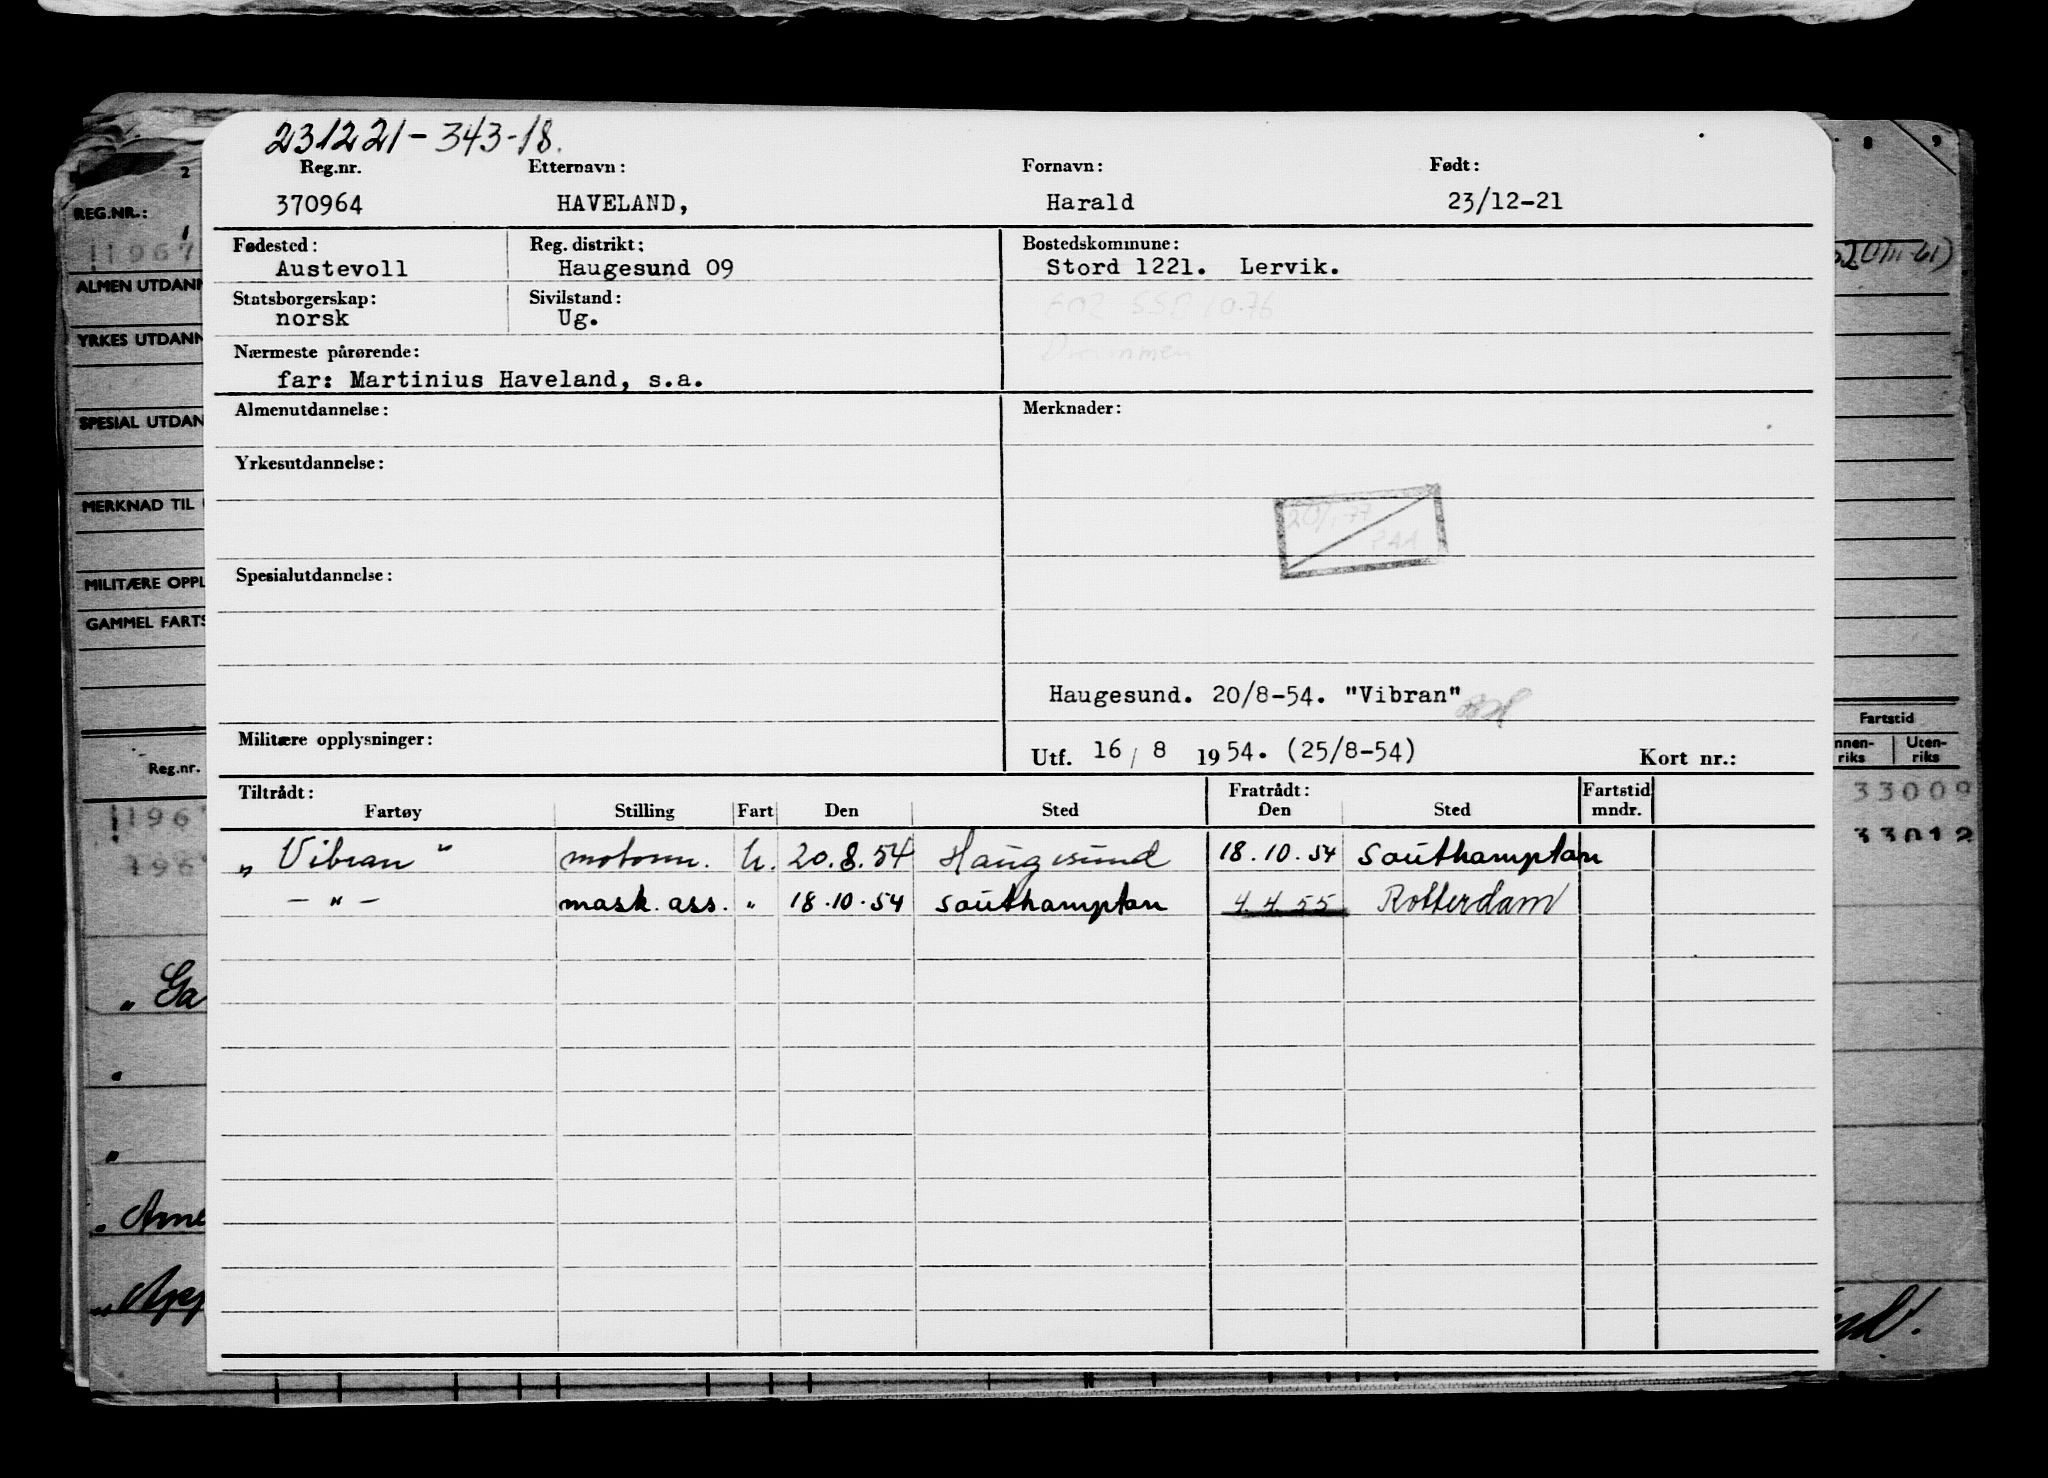 231221-343-18.
Reg.nr. Etternavn: Fornavn: Født:
370964 HAVELAND, Harald 23/12-21
Fødested: Reg. distrikt: Bostedskommune:
Austevoll Haugesund 09 Stord 1221. Lervik.
Statsborgerskap: Sivilstand:
norsk Ug.
602 SSB 10.76
Drammen
Nærmeste pårørende:
far: Martinius Haveland, s.a.
Almenutdannelse: Merknader:
Yrkesutdannelse:
Spesialutdannelse:
Haugesund. 20/8-54. "Vibran"
Militære opplysninger:
Utf. 16 / 8 1954. (25/8-54) Kort nr.:
Tiltrådt: Fratrådt: Fartstid
Fartøy Stilling Fart Den Sted Den Sted mndr.
„ Vibran " motorm. U. 20.8.54 Haugesund 18.10.54 Southampton
— „ — mask. ass. „ 18.10.54 Southampton 4.4.55 Rotterdam
2
REG.NR.:
1967
ALMEN UTDANN
YRKES UTDANN
SPESIAL UTDAN
MERKNAD TIL
MILITÆRE OPPL
GAMMEL FARTS
Reg.nr.
196
196
„ Ga
„
„
„ Ame
„ App
8 9
Fartstid
nnen-
riks
Uten-
riks
33009
33012